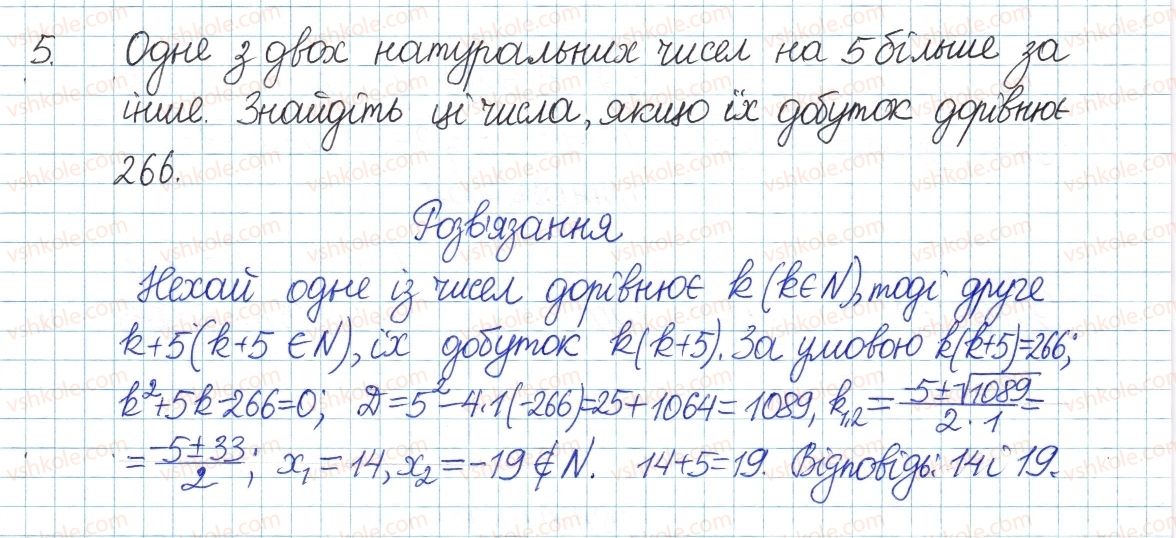 5. Одне з двох натуральних чисел на 5 більше за
інше. Знайдіть ці числа, якщо їх добуток дорівнює
266.
Розв'язання
Нехай одне із чисел дорівнює k (k∈N), тоді друге
k+5 (k+5 ∈N), їх добуток k(k+5). За умовою k(k+5)=266;
k²+5k-266=0; D=5²-4·1(-266)=25+1064=1089, k₁,₂ = (-5±√1089)/(2·1) =
= (-5±33)/2; x₁=14, x₂=-19∉N. 14+5=19. Відповідь: 14 і 19.